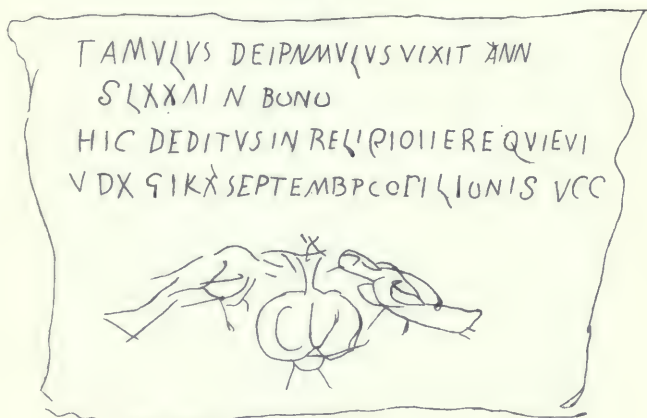 TAMVLVS DEIPNMVLVS VIXIT ANN
SLXXΛI N BONO
HIC DEDITVS IN RELIPIOIIERE QVIEVI
V DX GIKX SEPTEMBPCOΓILIONIS VCC